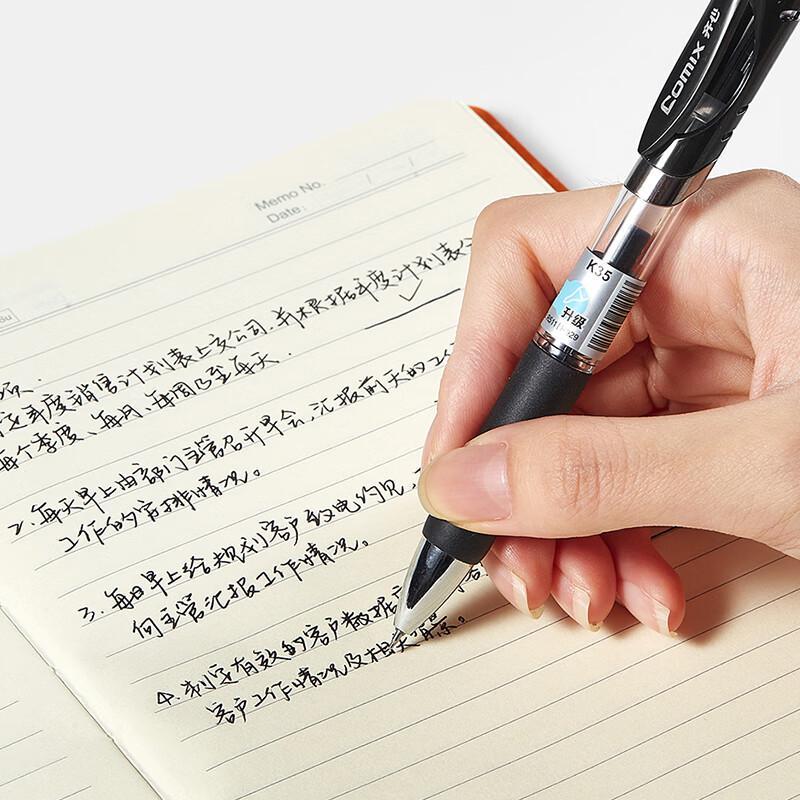 Comix 齐心
K35
升级
Memo No.
Date:
年度销售计划表上交公司,并根据年度计划表
每个季度、每月、每周乃至每天.
2. 每天早上由部门主管召开早会,汇报前天的工
工作的安排情况。
3. 每日早上给规划客户致电约见,
向主管汇报工作情况。
4. 制定有效的客户数据
客户工作情况及相关背景。